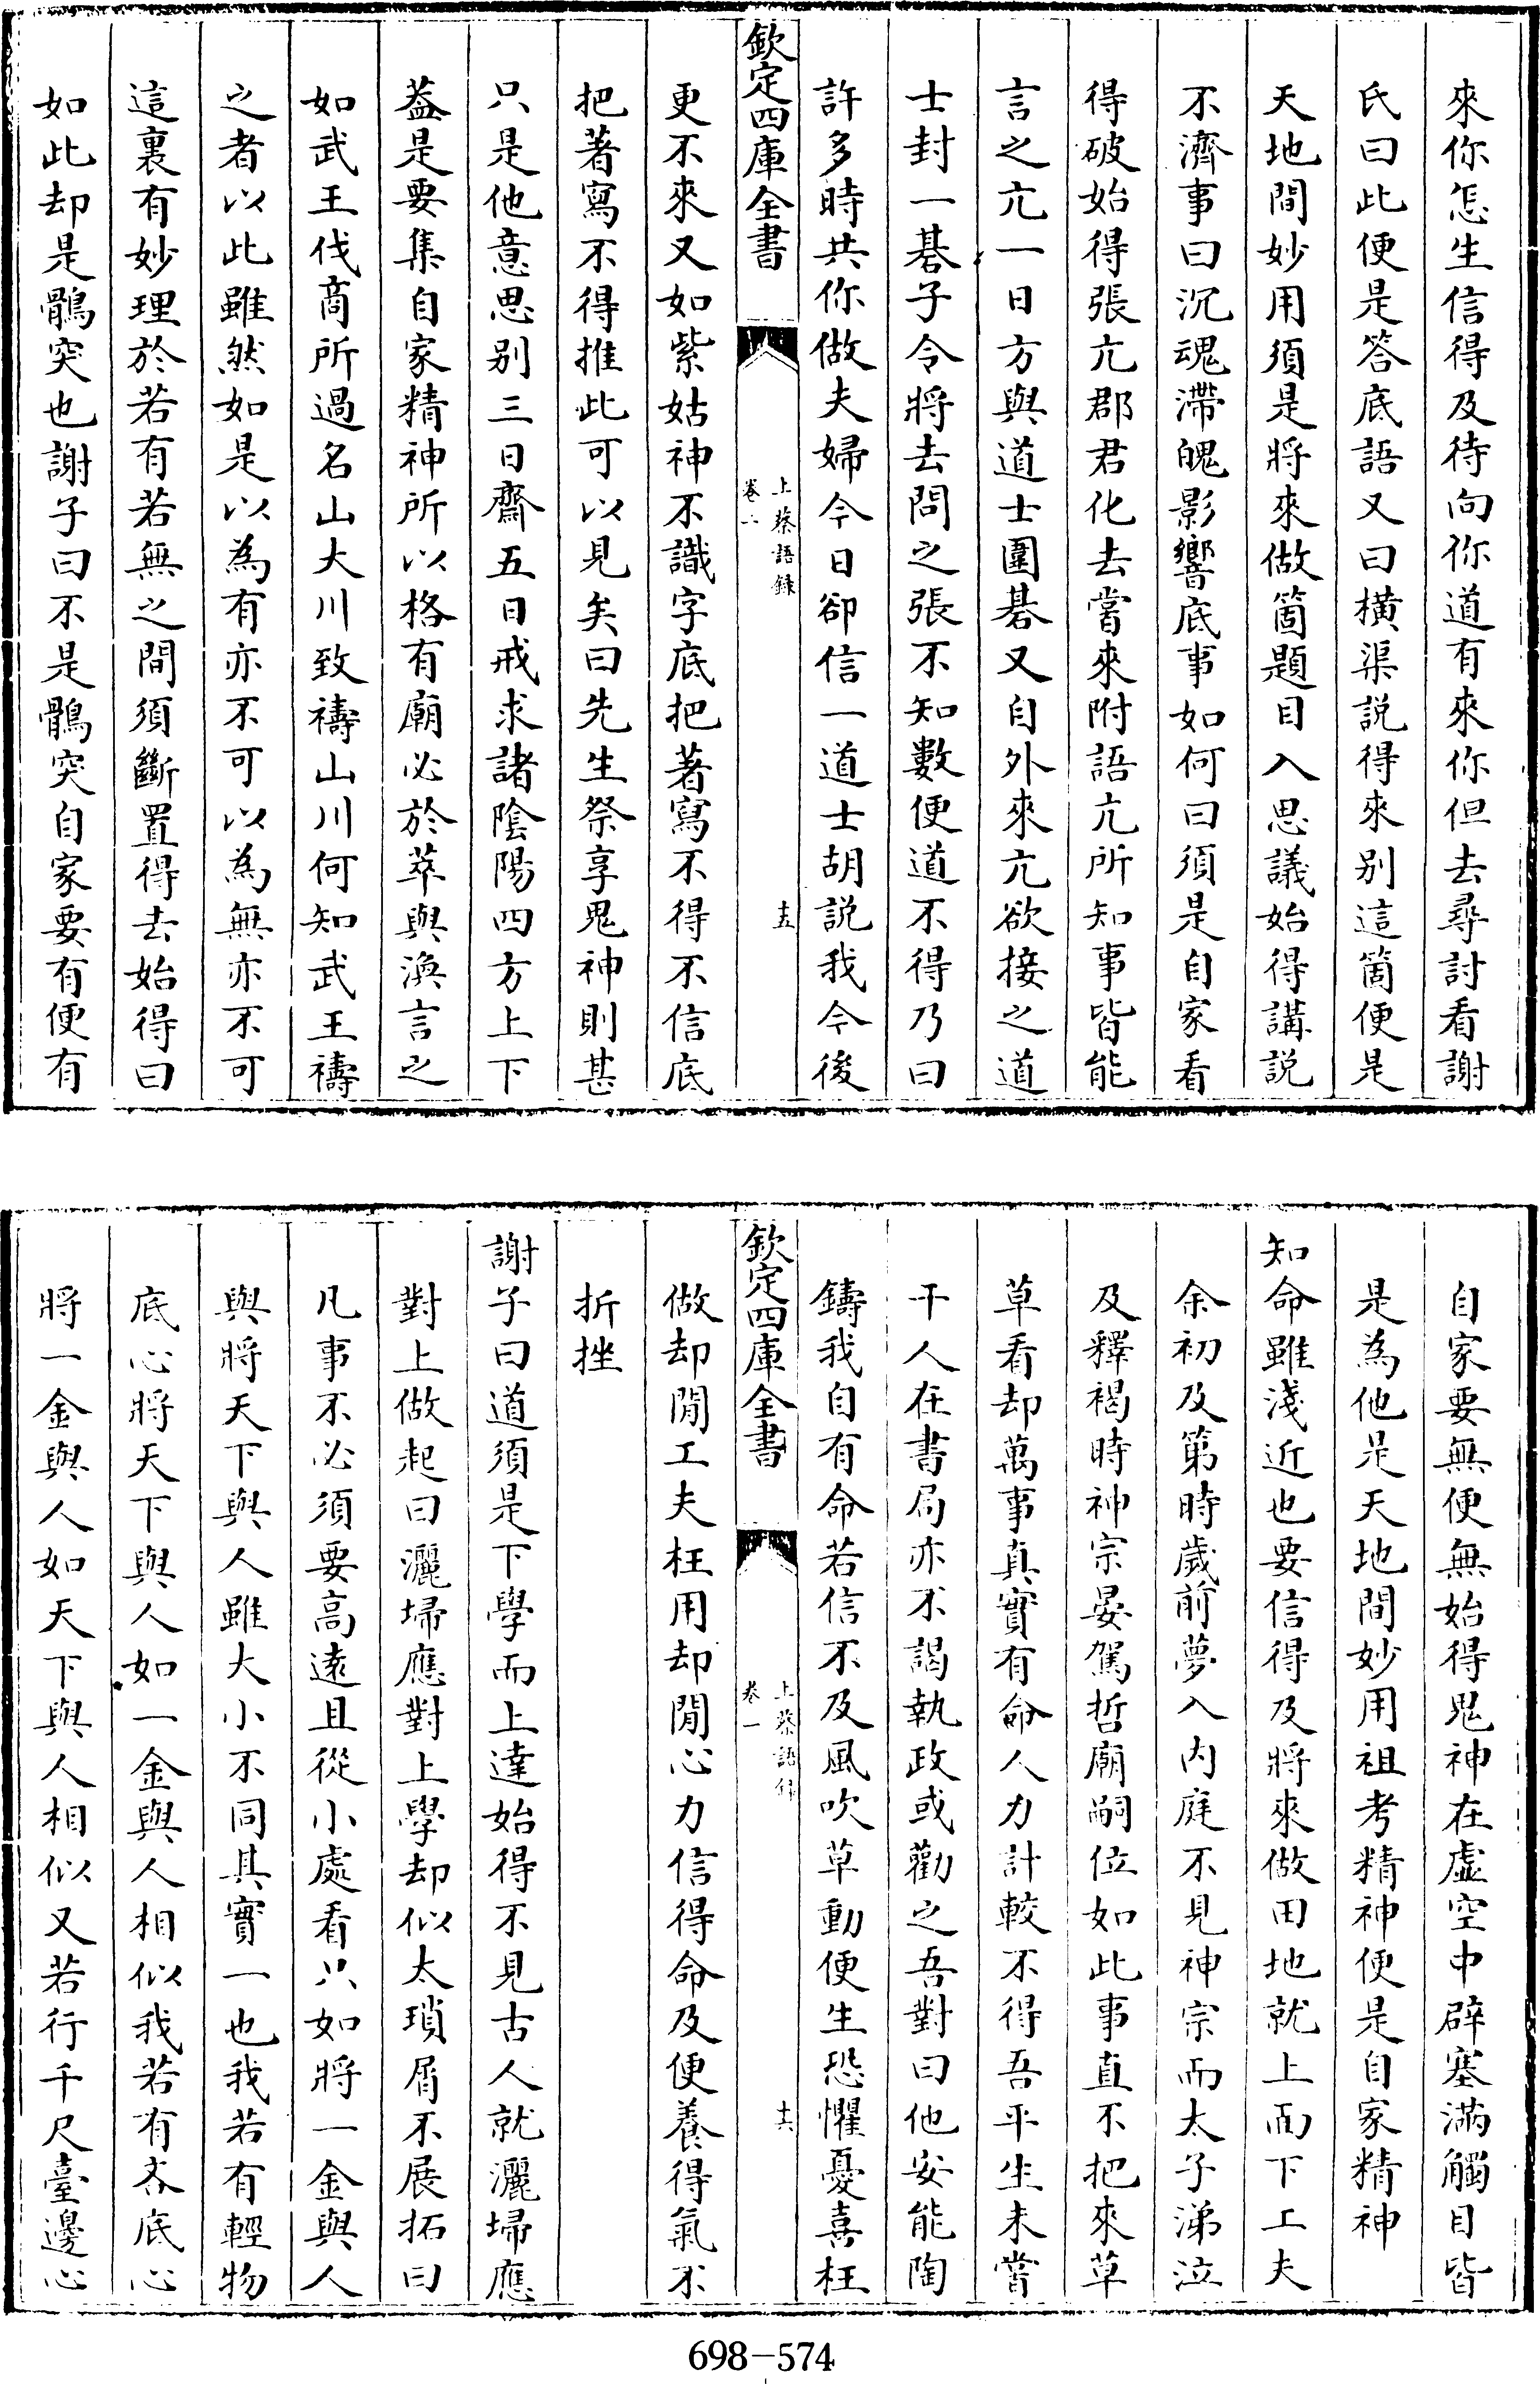 來你怎生信得及待向你道有來你但去尋討看謝
氏曰此便是答底語又曰橫渠説得來别這箇便是
天地間妙用須是將來做箇題目入思議始得講説
不濟事曰沉魂滯魄影響底事如何曰須是自家看
得破始得張亢郡君化去嘗來附語亢所知事皆能
言之亢一日方與道士圍碁又自外來亢欲接之道
士封一碁子令將去問之張不知數便道不得乃曰
許多時共你做夫婦今日卻信一道士胡説我今後
欽定四庫全書
上蔡語録
卷一
十五
更不來又如紫姑神不識字底把著寫不得不信底
把著寫不得推此可以見矣曰先生祭享鬼神則甚
只是他意思别三日齋五日戒求諸陰陽四方上下
葢是要集自家精神所以格有廟必於萃與渙言之
如武王伐商所過名山大川致禱山川何知武王禱
之者以此雖然如是以為有亦不可以為無亦不可
這裏有妙理於若有若無之間須斷置得去始得曰
如此却是鶻突也謝子曰不是鶻突自家要有便有
自家要無便無始得鬼神在虛空中辟塞滿觸目皆
是為他是天地間妙用祖考精神便是自家精神
知命雖淺近也要信得及將來做田地就上面下工夫
余初及第時歲前夢入内庭不見神宗而太子涕泣
及釋褐時神宗晏駕哲廟嗣位如此事直不把來草
草看却萬事真實有命人力計較不得吾平生未嘗
干人在書局亦不謁執政或勸之吾對曰他安能陶
鑄我自有命若信不及風吹草動便生恐懼憂喜枉
欽定四庫全書
上蔡語録
卷一
十六
做却閒工夫枉用却閒心力信得命及便養得氣不
折挫
謝子曰道須是下學而上達始得不見古人就灑埽應
對上做起曰灑埽應對上學却似太瑣屑不展拓曰
凡事不必須要高遠且從小處看只如將一金與人
與將天下與人雖大小不同其實一也我若有輕物
底心將天下與人如一金與人相似我若有吝底心
將一金與人如天下與人相似又若行千尺臺邊心
698-574